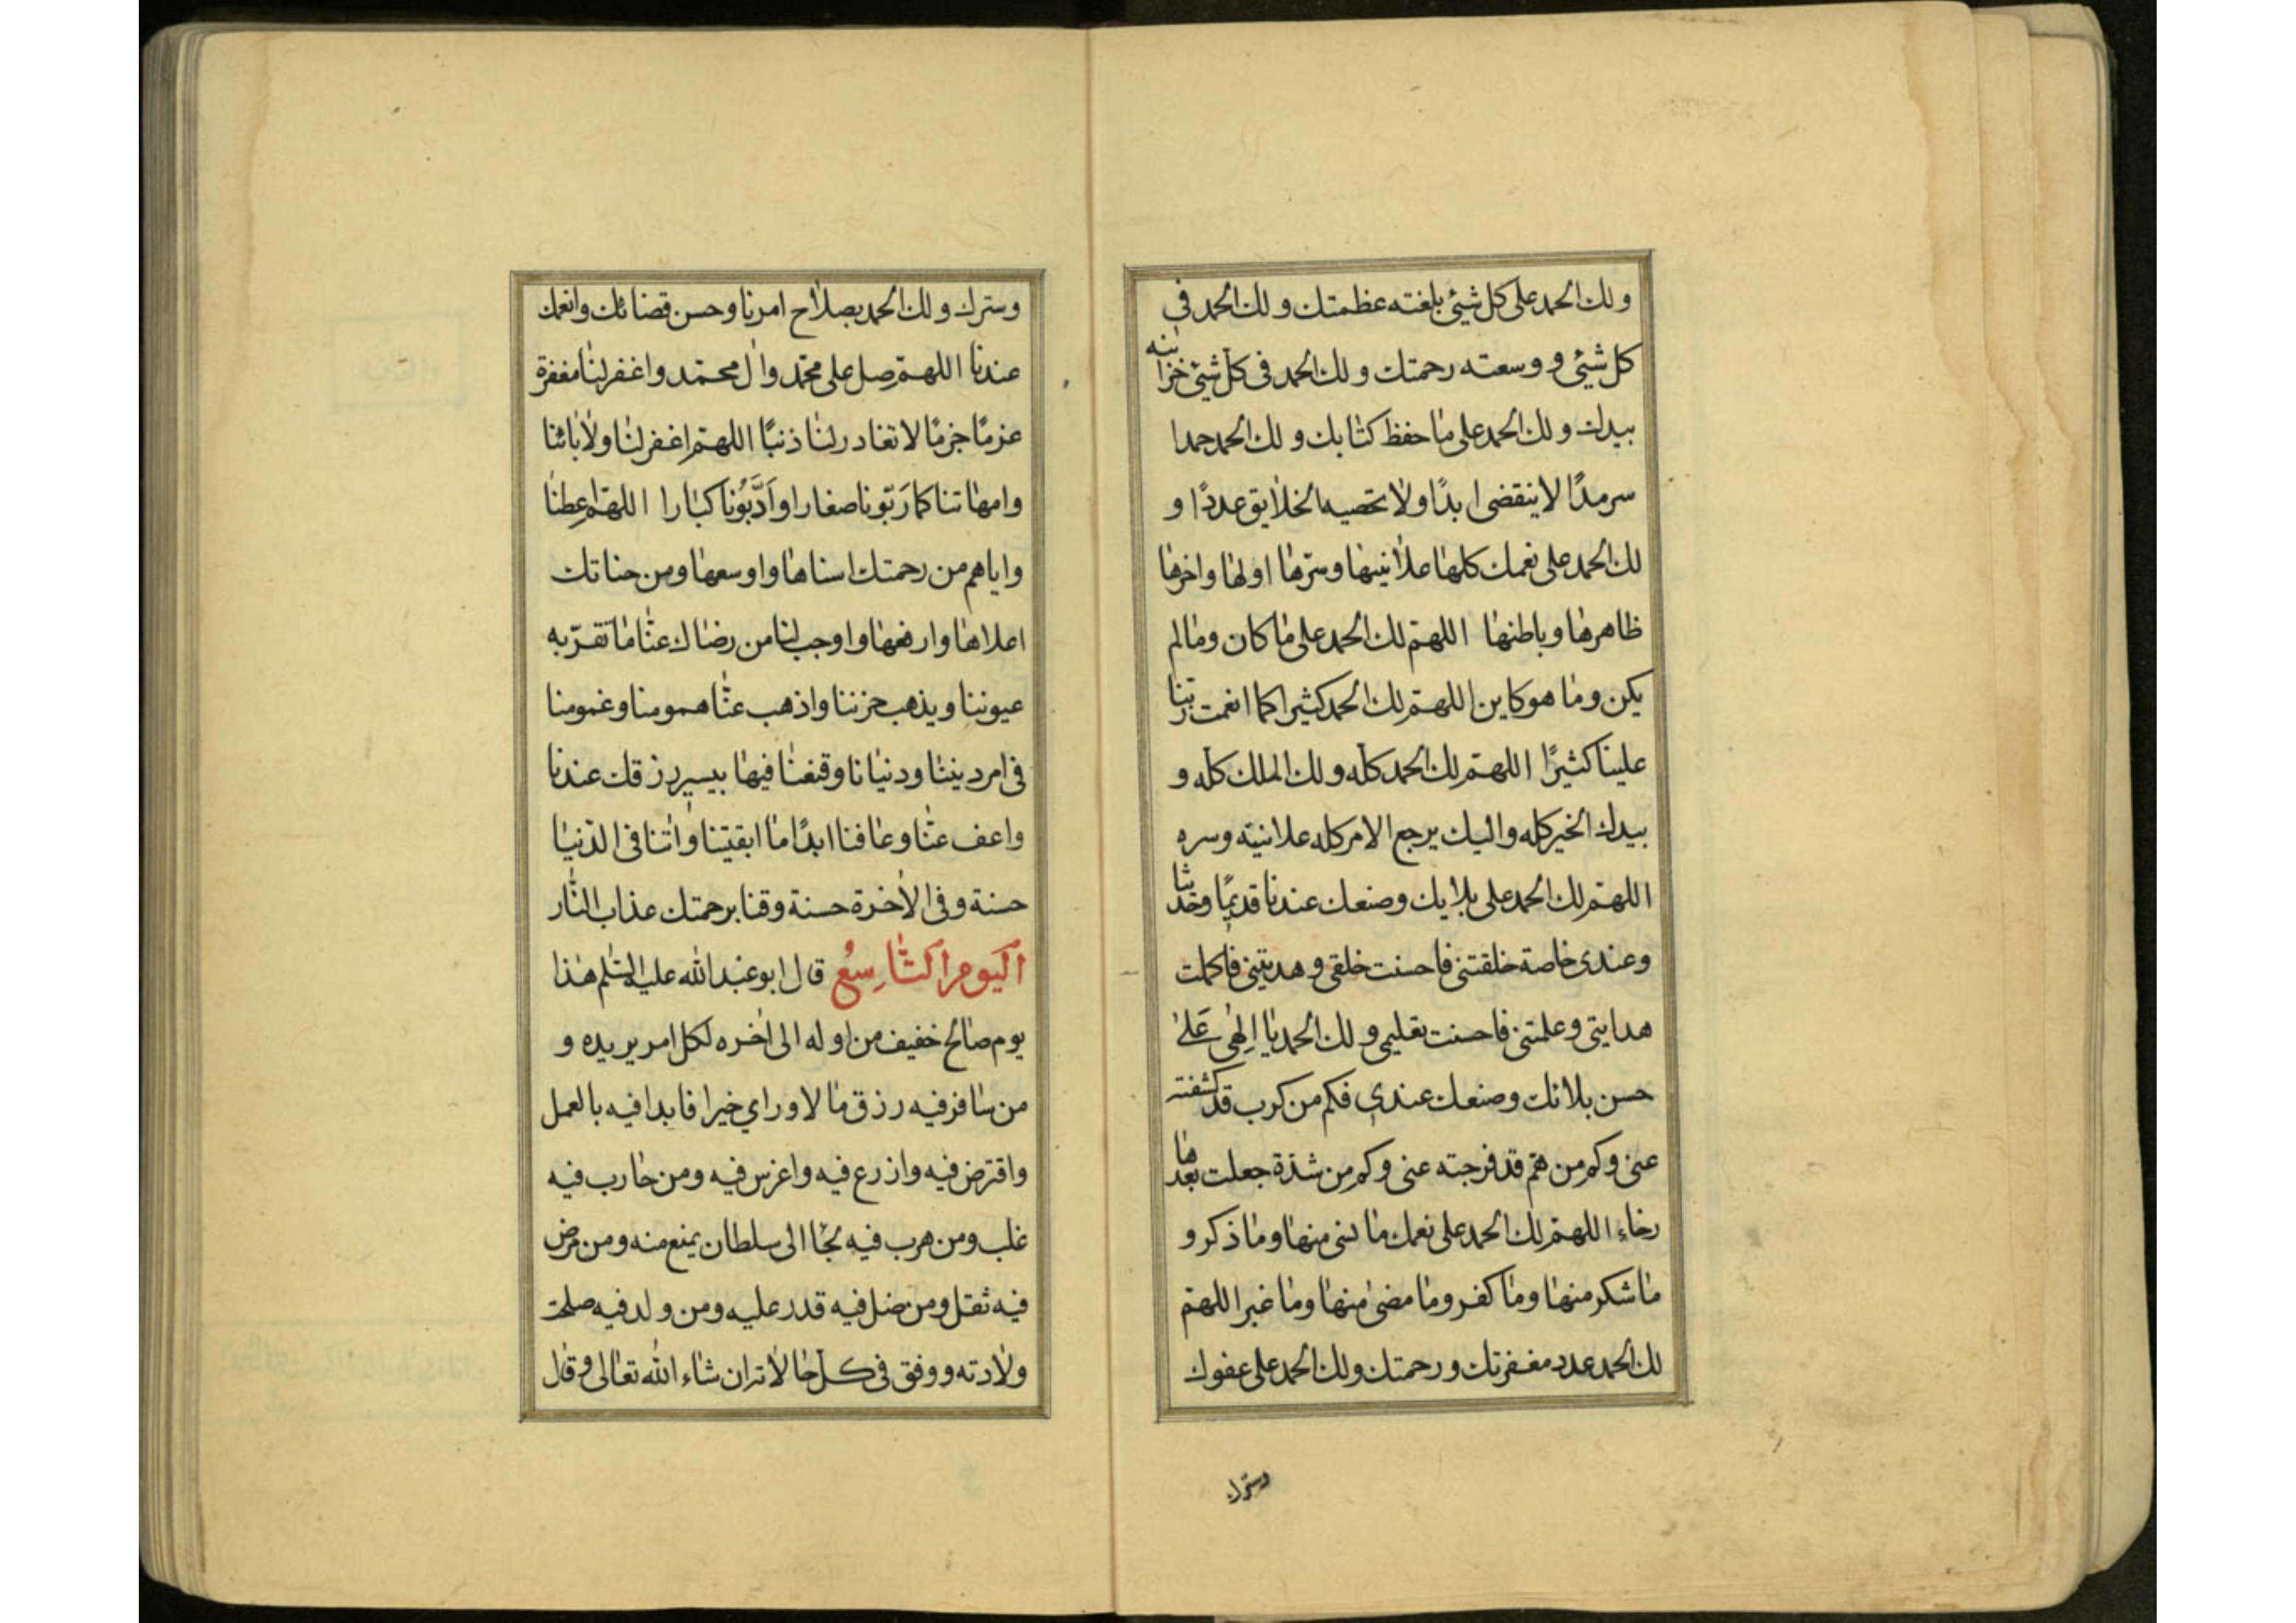 ولك الحمد على كل شيئ بلغته عظمتك ولك الحمد فى
كل شيئ و وسعته رحمتك ولك الحمد فى كل شيئ خزاينه
بيدك ولك الحمد على ما حفظ كتابك ولك الحمد حمدا
سرمدًا لا ينقضى ابدًا ولا تحصيه الخلايق عددًا و
لك الحمد على نعمك كلها علانيتها وسرّها اولها واخرها
ظاهرها وباطنها اللهمّ لك الحمد على ما كان وما لم
يكن وما هو كاين اللهمّ لك الحمد كثيرا كما انعمت ربّنا
علينا كثيرًا اللهمّ لك الحمد كلّه ولك الملك كلّه و
بيدك الخير كله واليك يرجع الامر كله علانيته وسره
اللهمّ لك الحمد على بلايك وصنعك عندنا قديمًا وحديثا
وعندى خاصة خلقتنى فاحسنت خلقى وهديتنى فاكملت
هدايتى وعلمتنى فاحسنت تعليمى ولك الحمد يا الهى على
حسن بلائك وصنعك عندى فكم من كرب قد كشفته
عنى وكم من همّ قد فرجته عنى وكم من شدّة جعلت بعدها
رخاء اللهمّ لك الحمد على نعمك ما نسى منها وما ذكر و
ما شكر منها وما كفر وما مضى منها وما غبر اللهمّ
لك الحمد عدد مغفرتك ورحمتك ولك الحمد على عفوك
وسترك
وسترك ولك الحمد بصلاح امرنا وحسن قضائك وانعمك
عندنا اللهمّ صل على محمّد وال محمّد واغفر لنا مغفرة
عزمًا جزمًا لا تغادر لنا ذنبًا اللهمّ اغفر لنا ولابائنا
وامهاتنا كما رَبّونا صغارا واَدَّبُونا كبارا اللهمّ اعطنا
واياهم من رحمتك اسناها واوسعها ومن جناتك
اعلاها وارفعها واوجب لنا من رضاك عنّا ما تقرّ به
عيوننا ويذهب حزننا واذهب عنّا همومنا وغمومنا
فى امر ديننا ودنيانا وقنعنا فيها بيسير رزقك عندنا
واعف عنّا وعافنا ابدًا ما ابقيتنا واتنا فى الدّنيا
حسنة وفى الاخرة حسنة وقنا برحمتك عذاب النّار
اليوم التّاسِعُ قال ابو عبد الله عليه السّلم هذا
يوم صالح خفيف من اوله الى اخره لكل امر يريده و
من سافر فيه رزق مالا وراي خيرا فابدا فيه بالعمل
واقترض فيه وازرع فيه واغرس فيه ومن حارب فيه
غلب ومن هرب فيه نجا الى سلطان يمنع منه ومن مرض
فيه ثقل ومن ضل فيه قدر عليه ومن ولد فيه صلحت
ولادته ووفق فى كل حالاته ان شاء الله تعالى وقال